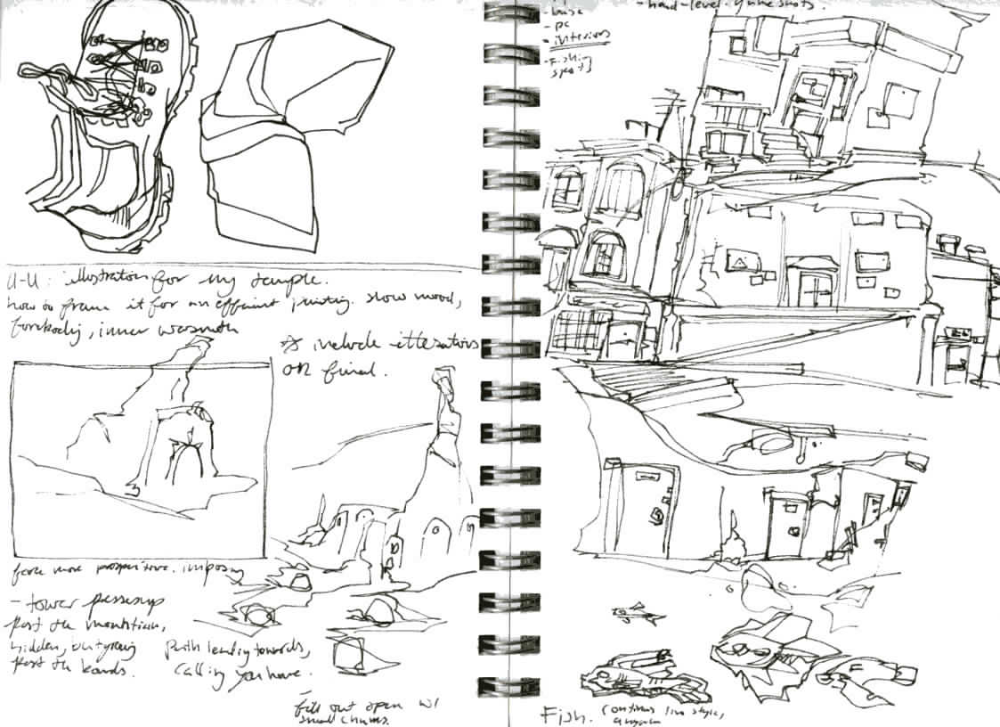 U-U: illustration for my temple.
how to frame it for an efficient painting. slow mood,
inner warmth
* include iterations
on final.
force more perspective. imposing
- tower passing up
past the mountain,
hidden, outgoing
past the bounds.
Path leading towards,
calling you home.
fill out open w/
small
- pc
- interiors
- Fishing
spots
- hand-level
shots.
Fish. continuous line style,